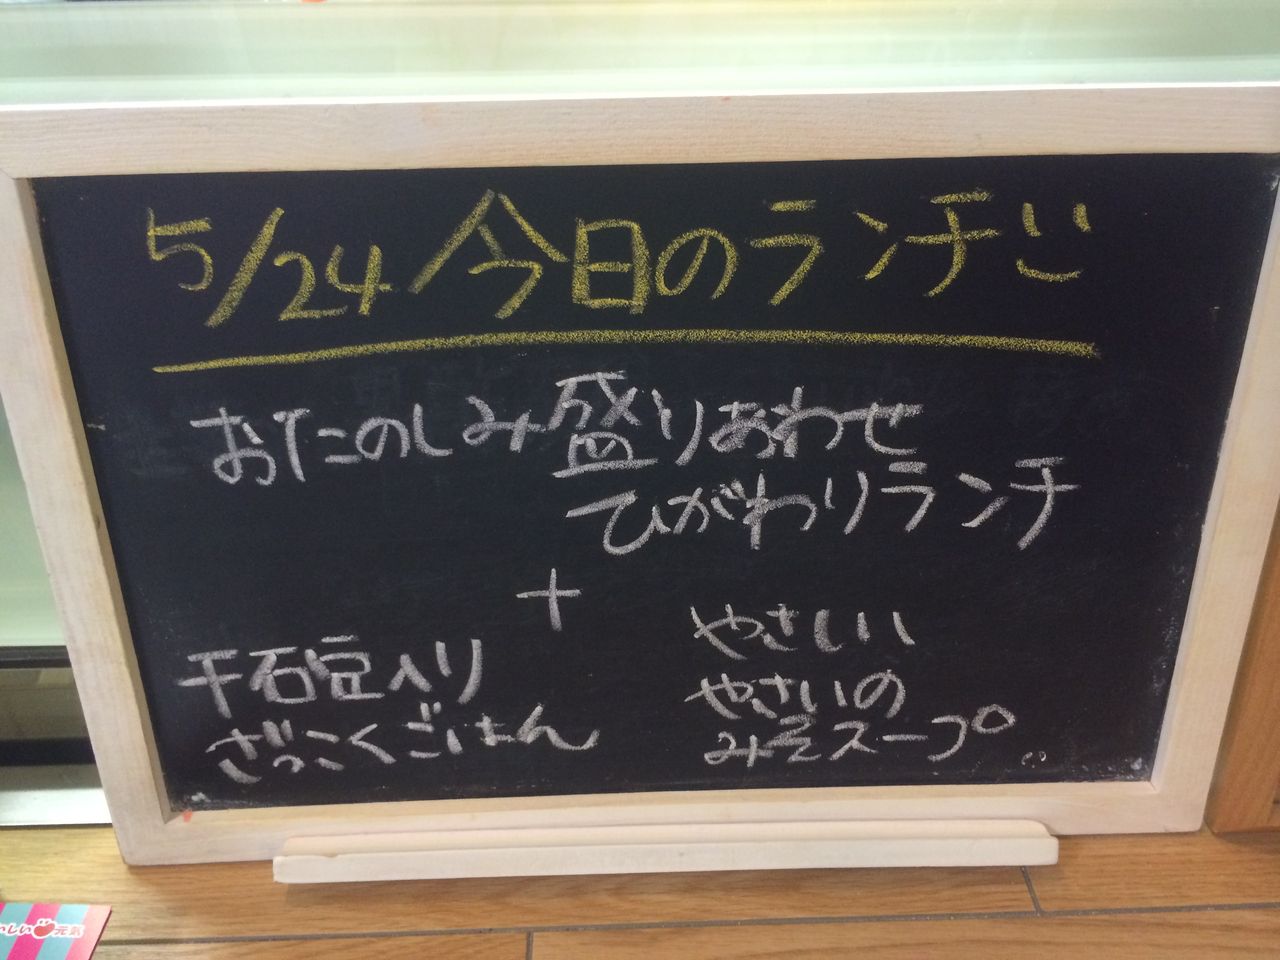 5/24 今日のランチご
おたのしみ盛りあわせ
ひがわりランチ
+
千石豆入り
ざっこくごはん
やさしい
やさいの
みそスープ
しい元気